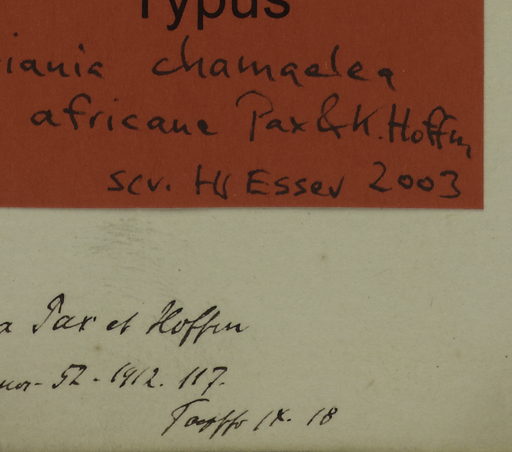 Typus
iania chamaelea
africana Pax & K. Hoffm
scr. HJ Esser 2003
a Pax et Hoffm
52 - 1912. 117.
IX. 18